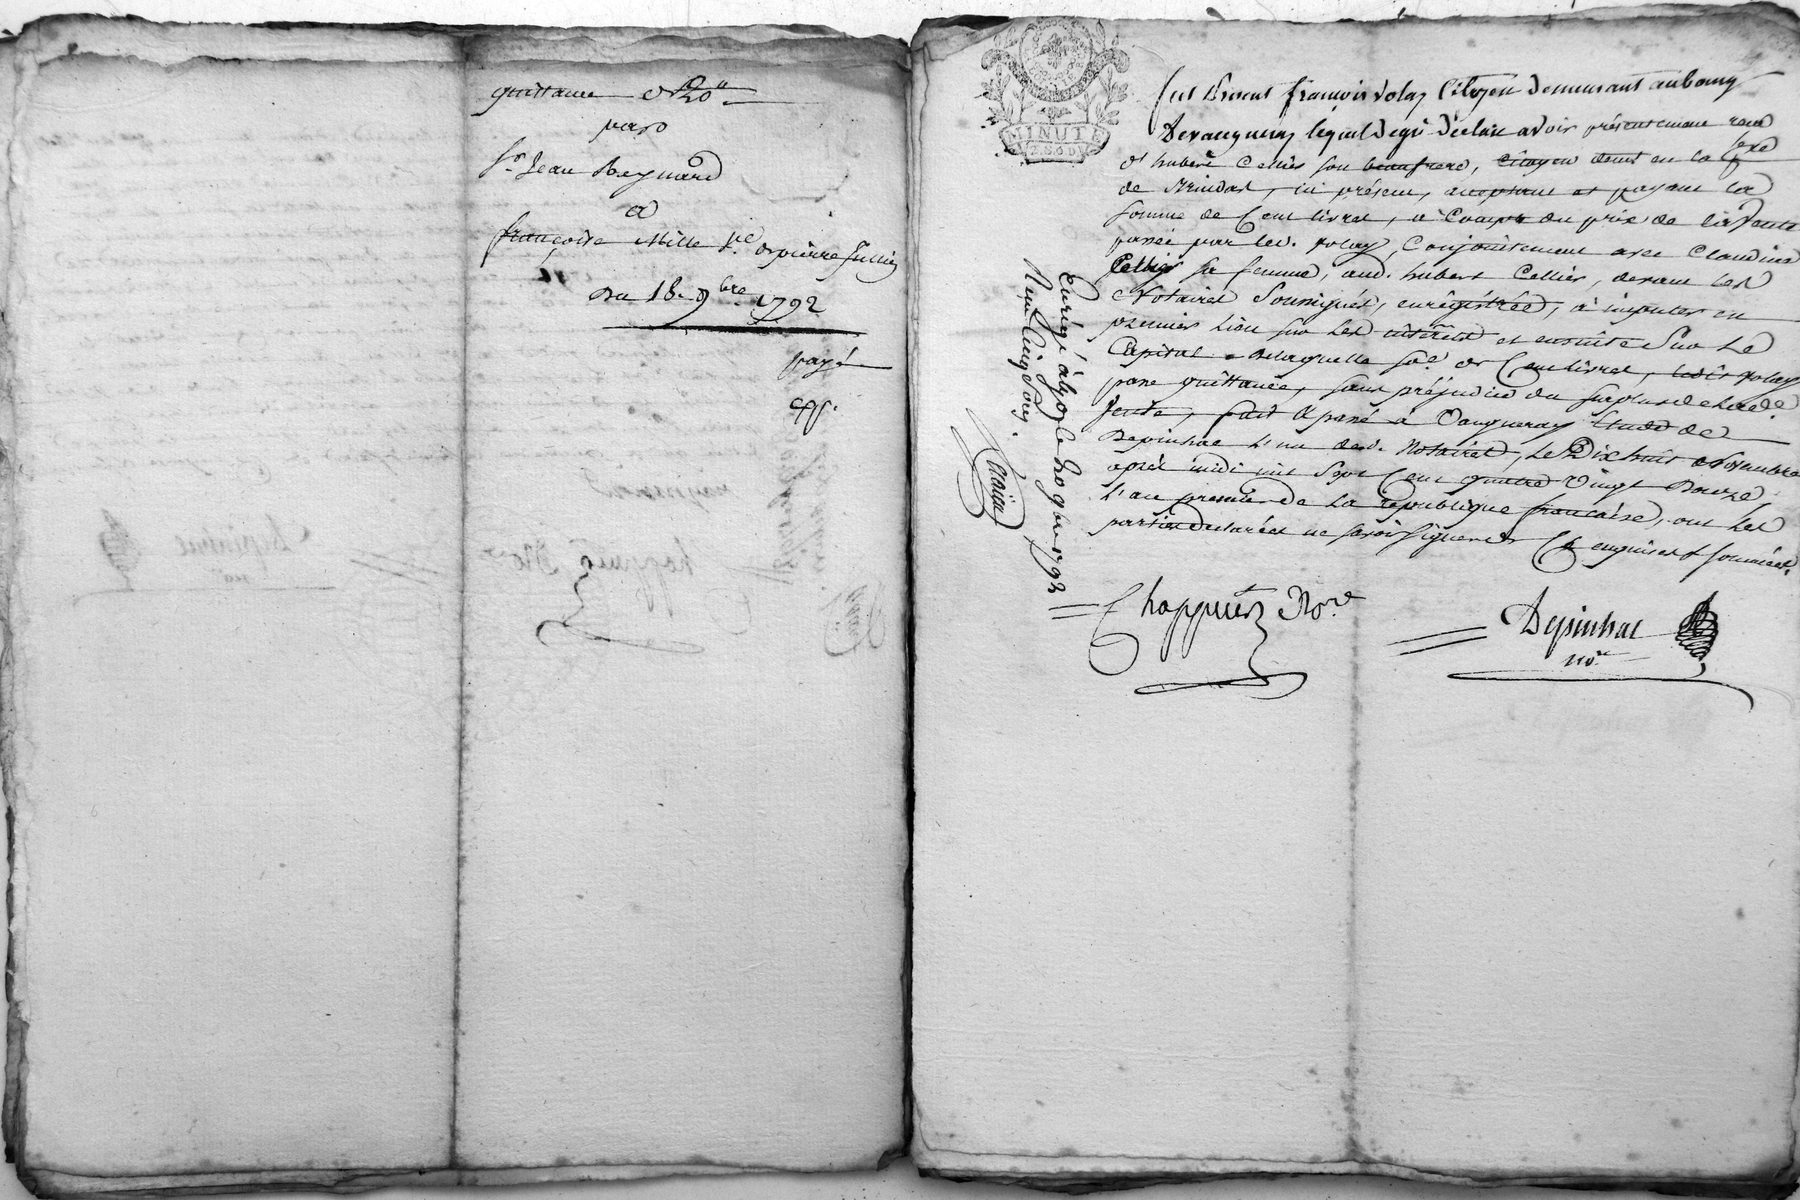 quittance
par
Sr. Jean Reynard
a
françoise Mille Ve. de pierre Jullien
Du 18. 9bre. 1792
payé
MINUTE
fut Present françois Volay Citoyen demeurant au bourg
De vaugneray lequel de gré déclare avoir présentement reçu
d'hubert Cellier son beaufrere, Citoyen demt. en la
de, ici présent, acceptant et payant la
somme de Cent livres, a Compte du prix de la Vente
passée par led. Volay, Conjointement avec Claudine
Cellier sa femme, aud. hubert Cellier, devant les
Notaires Soussignés, enregistrée, à imputer en
premier lieu sur les intérêts et ensuite Sur le
Capital, De laquelle so.e de Cent livres, ledit Volay
passe quittance, sans préjudice du surplus de lad.e
Vente, fait et passé à Vaugneray Etude de
Depinhac l'un desd. Notaires, le Dix huit Novembre
après midi mil Sept Cent quatre Vingt Douze
l'an premier de la république française, ont les
parties déclaré ne savoir Signer de Ce enquises & sommées.
Chappuis No.re
Depinhac
no.re